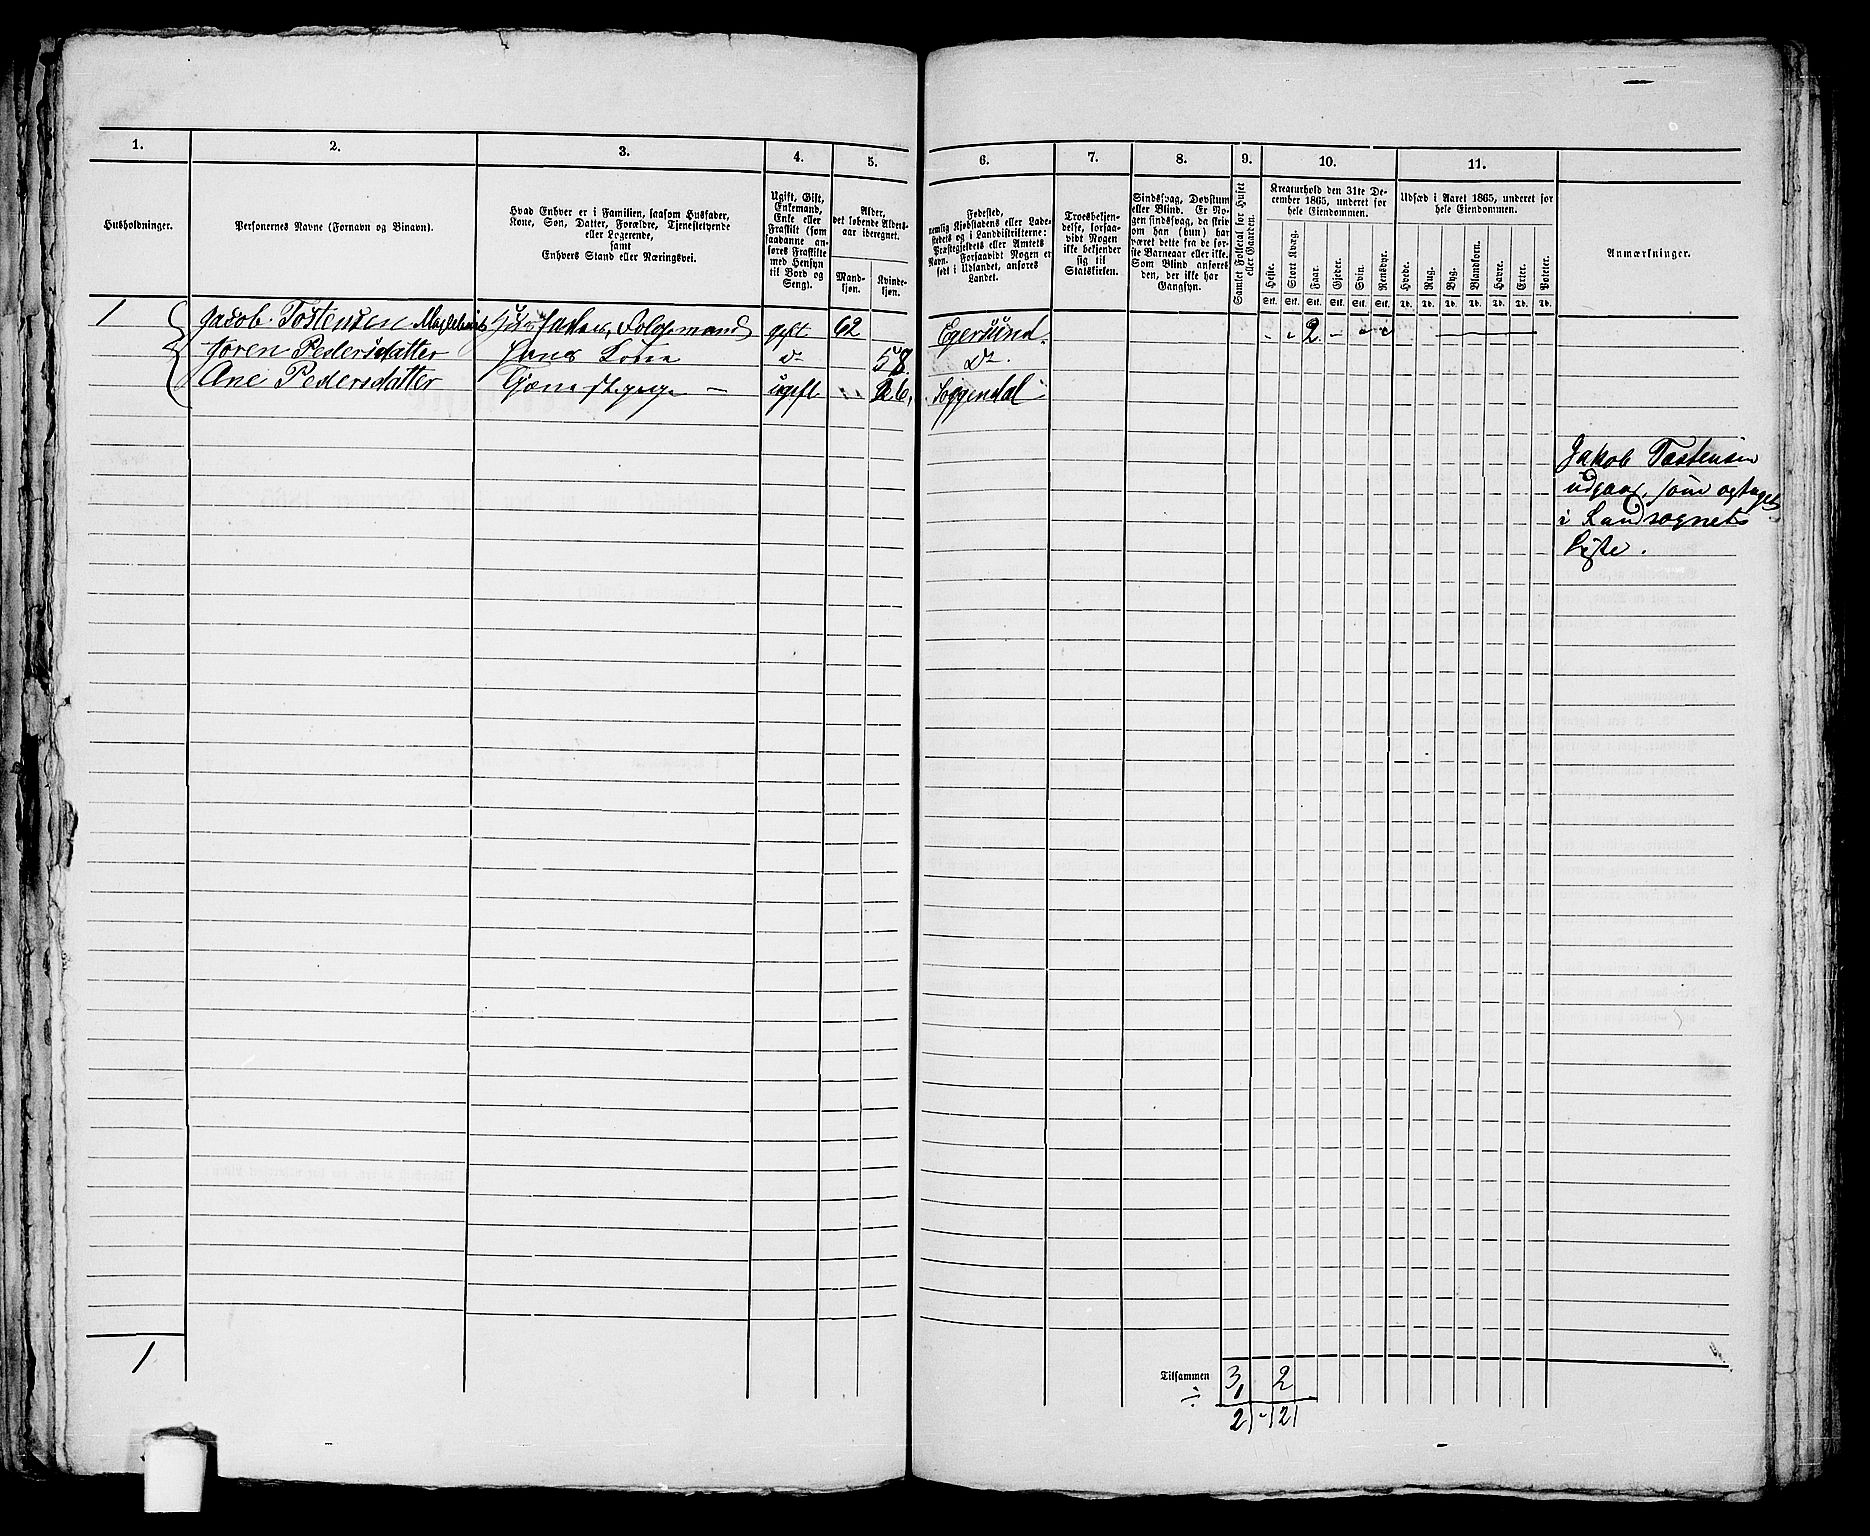 1. 2. 3. 4. 5. 6. 7. 8. 9. 10. 11.
Husholdninger.
Personernes Navne (Fornavn og Binavn).
Hvad Enhver er i Familien, saasom Husfader,
Kone, Søn, Datter, Forældre, Tjenestetyende
eller Logerende,
samt
Enhvers Stand eller Næringsvei.
Ugift, Gift,
Enkemand,
Enke eller
Fraskilt (som
saadanne an-
føres Fraskilte
med Hensyn
til Bord og
Seng).
Alder,
det løbende Alders-
aar iberegnet.
Mand-
kjøn.
Kvinde-
kjøn.
Fødested,
nemlig Kjøbstadens eller Lade-
stedets og i Landdistrikterne:
Præstegjeldets eller Amtets
Navn. Forsaavidt Nogen er
født i Udlandet, anføres
Landet.
Troesbekjen-
delse, forsaa-
vidt Nogen
ikke bekjender
sig til
Statskirken.
Sindssvag, Døvstum
eller Blind. Er No-
gen sindssvag, da skriv
om han (hun) har
været dette fra de før-
ste Barneaar eller ikke.
Som Blind anføres
den, der ikke har
Gangsyn.
Samlet Folketal for Huset
eller Gaarden.
Kreaturhold den 31te De-
cember 1865, underet for
hele Eiendommen.
Heste.
Stort Kvæg.
Faar.
Gjeder.
Svin.
Rensdyr.
Stk. Stk. Stk. Stk. Stk. Stk.
Udsæd i Aaret 1865, underet for
hele Eiendommen.
Hvede.
Rug.
Byg.
Blandkorn.
Havre.
Erter.
Poteter.
Td. Td. Td. Td. Td. Td. Td.
Anmærkninger.
1 Jacob Tostensen Husfader, Foldemand gift 62 Egersund. 2
Toren Pedersdatter Hans Kone do 58. do.
Ane Pedersdatter ugift 26, Soggendal
Jakob Tostensen
udgaar, som optaget
i Landsognets
Liste.
1
Tilsammen 3 2
÷ 1
2 2